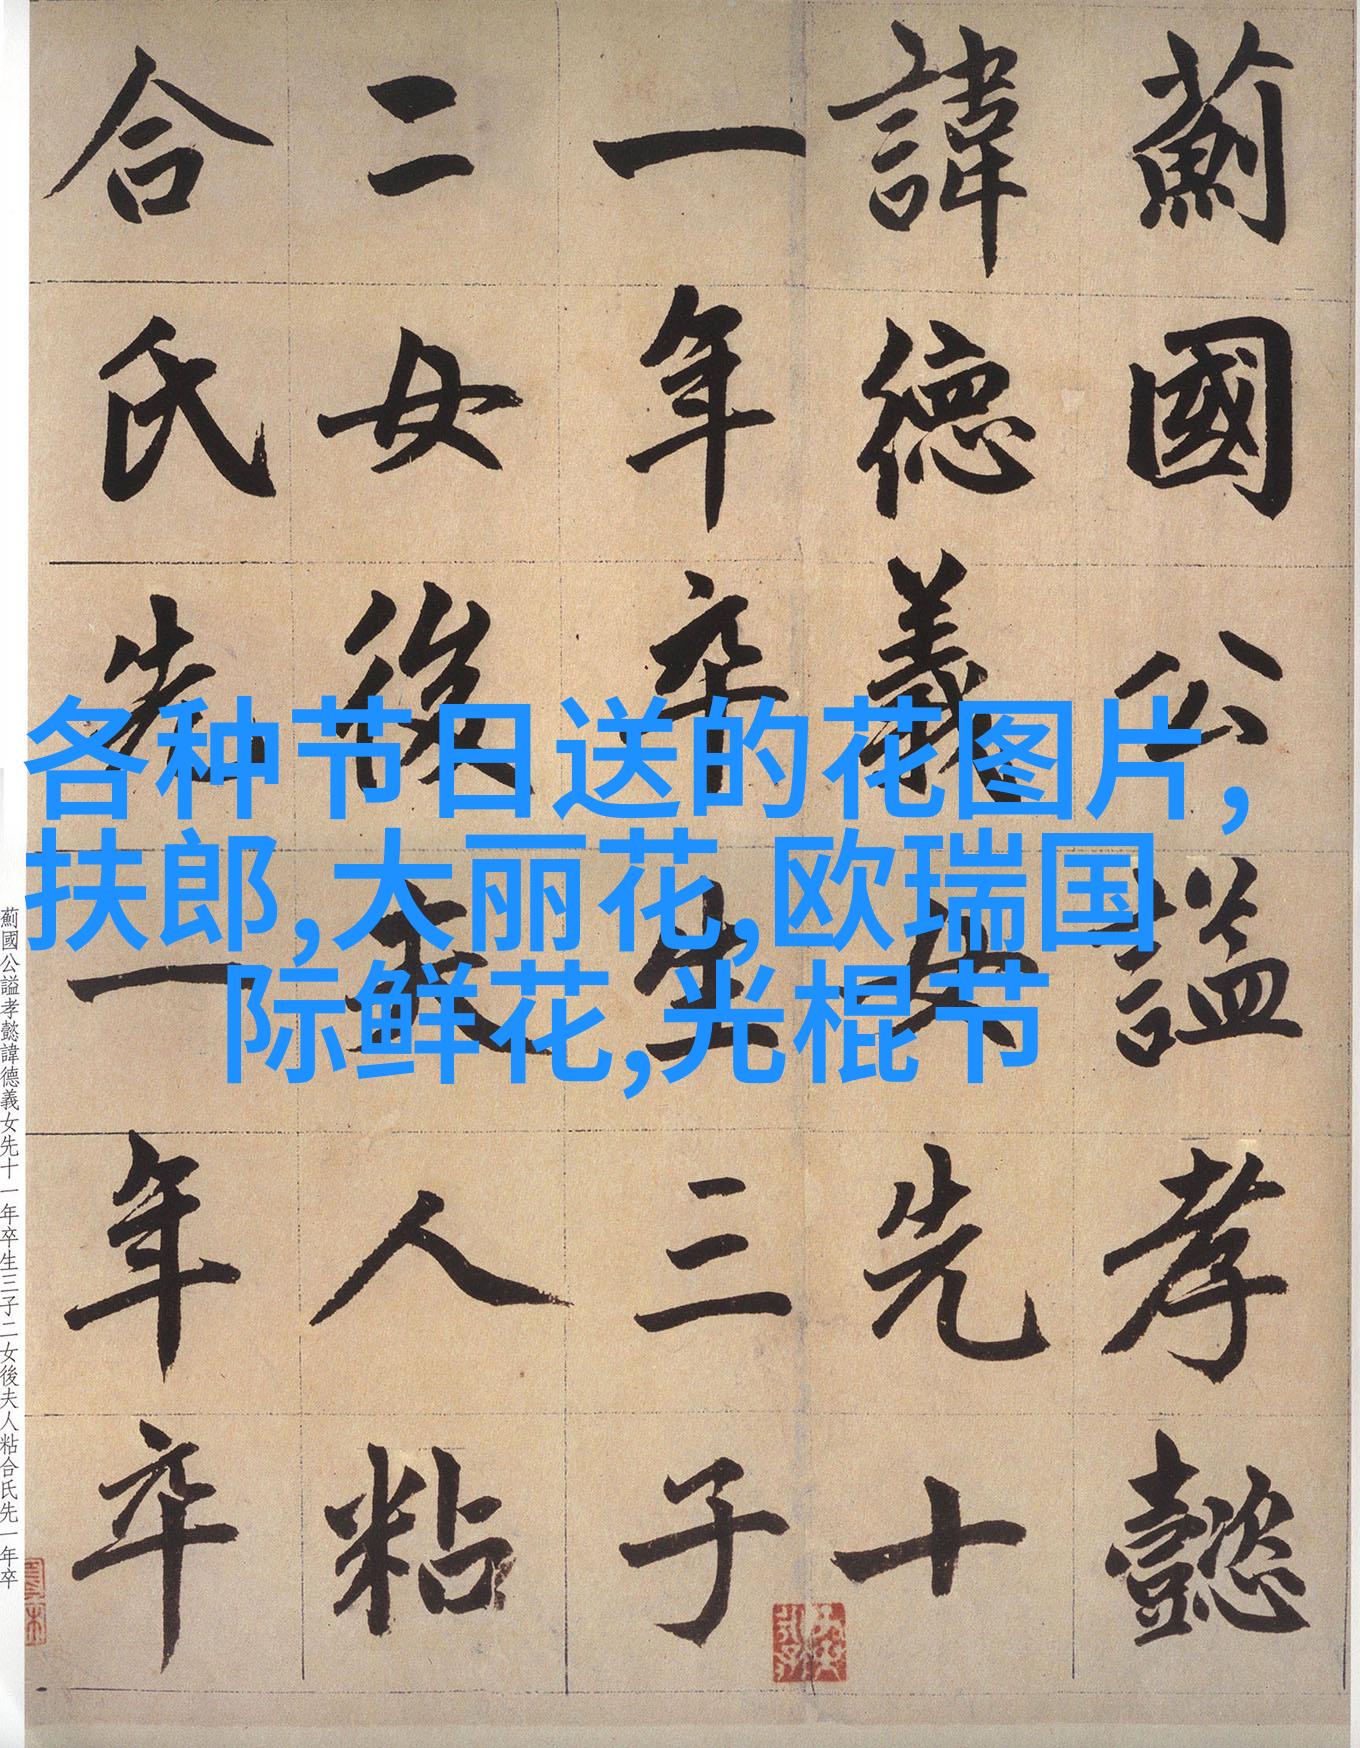 薊國公謚孝懿
諱德義女先十
一年卒生三子
二女後夫人粘
合氏先一年卒
各种节日送的花图片,
扶郎,大丽花,欧瑞国
际鲜花,光棍节
薊國公謚孝懿諱德義女先十一年卒生三子二女後夫人粘合氏先一年卒